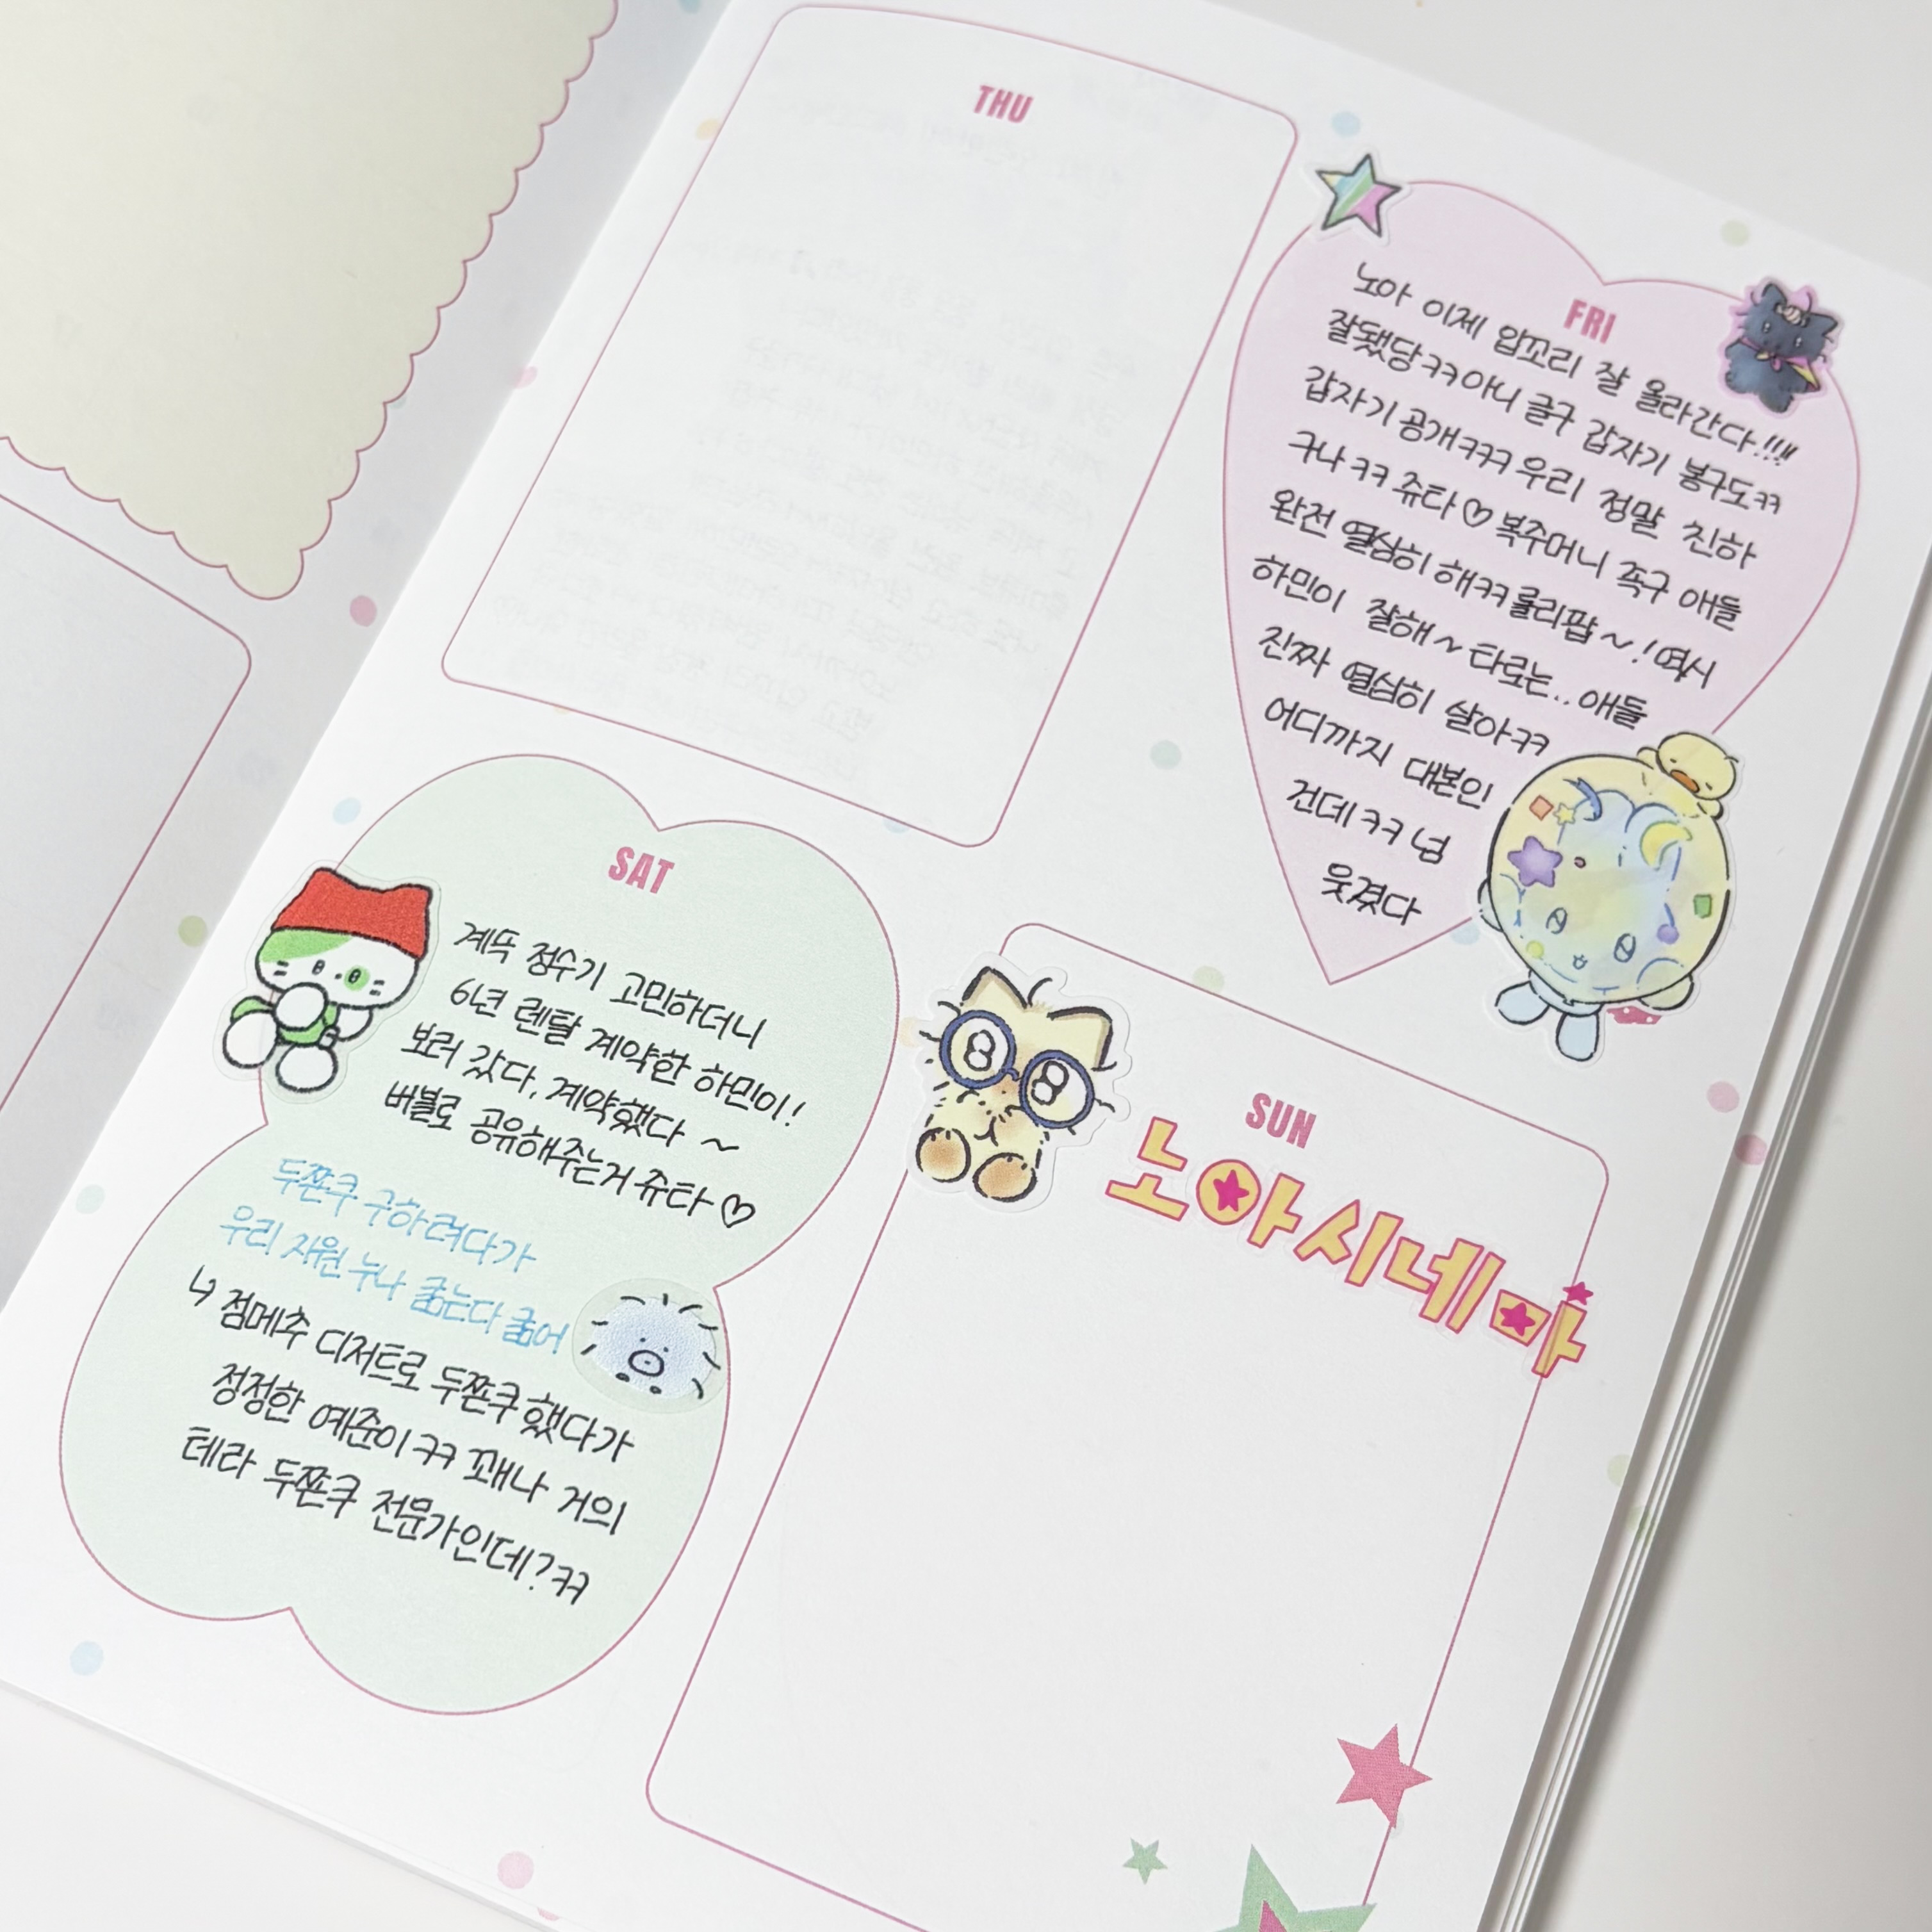 THU
FRI
노아 이제 입꼬리 잘 올라간다!!!!
잘됐당ㅋㅋ아니 글구 갑자기 봉구도ㅋㅋ
갑자기 공개ㅋㅋㅋ 우리 정말 친하
구나ㅋㅋ 쥬타♡ 복주머니 족구 애들
완전 열심히 해ㅋㅋ 롤리팝~! 역시
하민이 잘해~ 타로는.. 애들
진짜 열심히 살아ㅋㅋ
어디까지 대본인
건데ㅋㅋ 넘
웃겼다
SAT
계뚝 정수기 고민하더니
6년 렌탈 계약한 하민이!
보러 갔다, 계약했다 ~
버블로 공유해주는거 쥬타♡
두쫀쿠 구하려다가
우리 자원 누나 굶는다 굶어
↳ 점메추 디저트로 두쫀쿠했다가
정정한 예준이ㅋㅋ 꽤나 거의
테라 두쫀쿠 전문가인데?ㅋㅋ
SUN
노아시네마